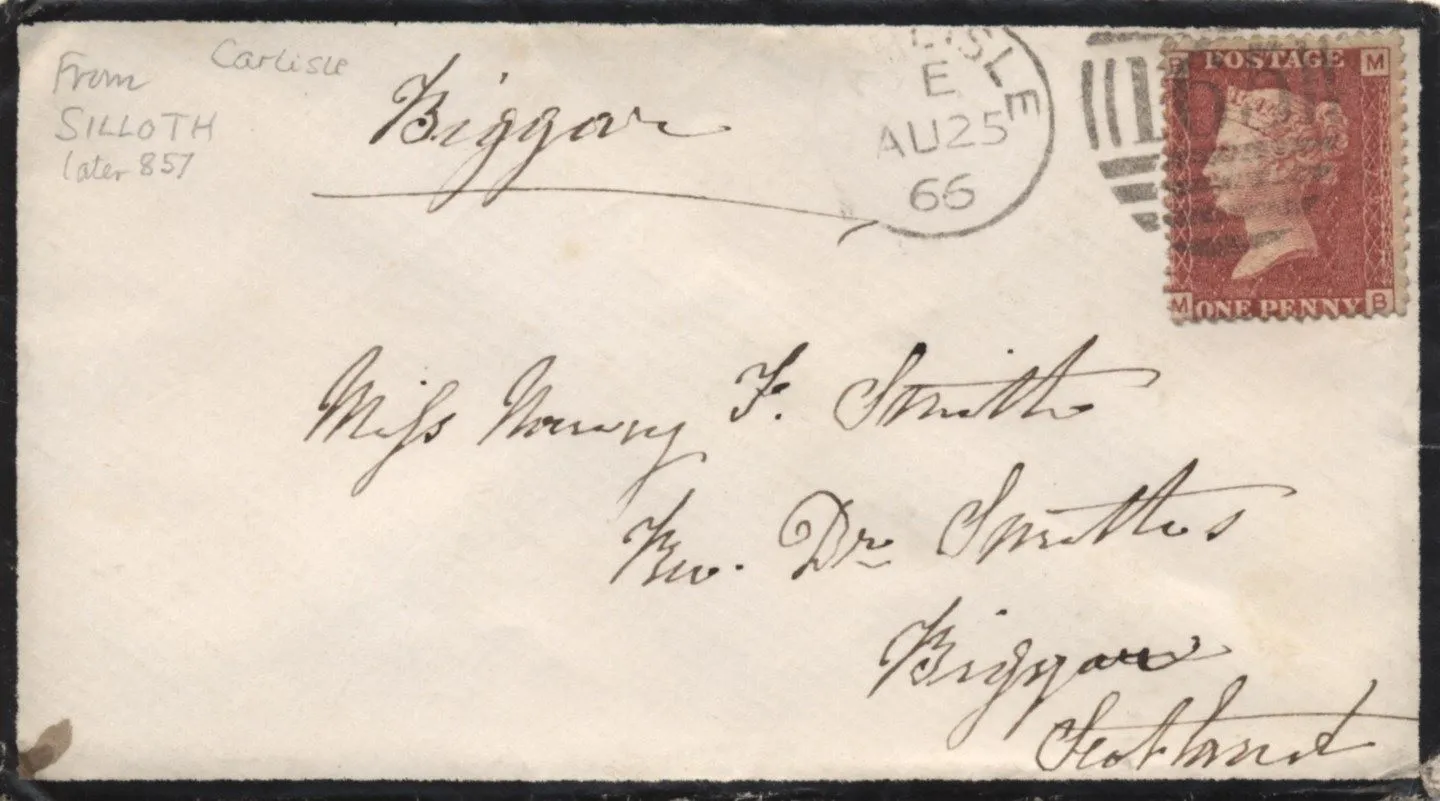 From
SILLOTH
later 857
Carlisle
Biggar
LISLE
E
AU25
66
POSTAGE
M
ONE PENNY
M
B
Miss F. Smith
Rev. Dr Smith's
Biggar
Scotland